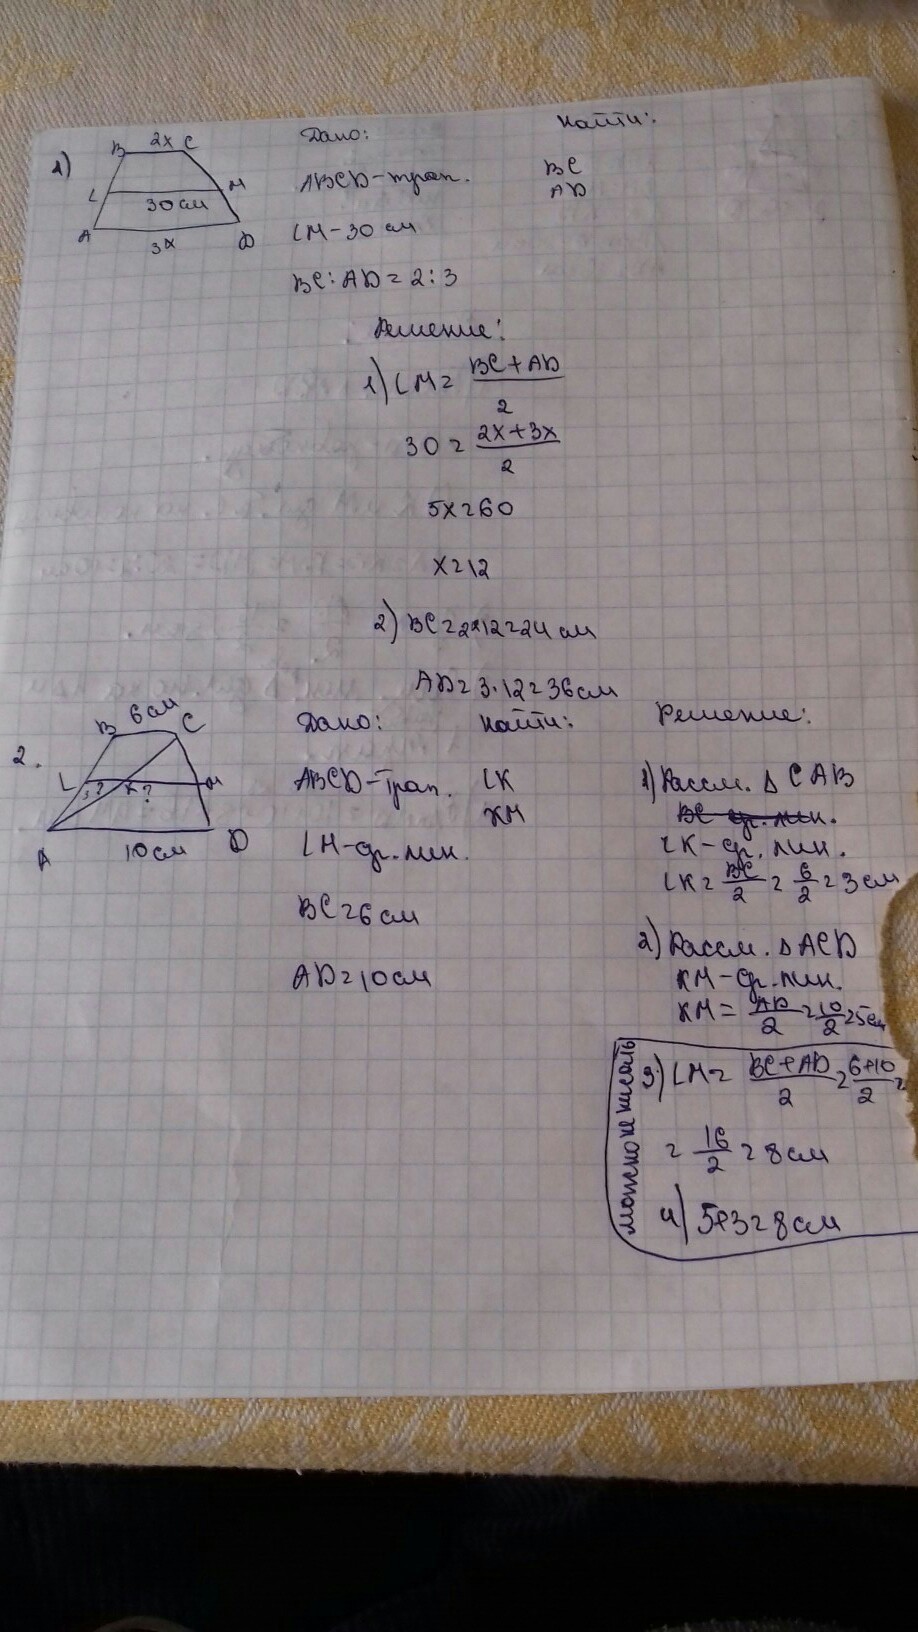 1)
B 2x C
L M
30 см
A D
3x
Дано:
ABCD-трап.
LM-30 см
BC:AD=2:3
Найти:
BC
AD
Решение:
1) LM = BC+AD / 2
30 = 2x+3x / 2
5x=60
x=12
2) BC=2*12=24 см
AD=3·12=36 см
2.
B 6 см C
L 3? K ? M
A 10 см D
Дано:
ABCD-трап.
LM-ср. лин.
BC=6 см
AD=10 см
Найти:
LK
KM
Решение:
1) Рассм. △ CAB
BC ср. лин.
LK-ср. лин.
LK = BC/2 = 6/2 = 3 см
2) Рассм. △ ACD
KM-ср. лин.
KM = AD/2 = 10/2 = 5 см
можно не писать
3) LM = BC+AD / 2 = 6+10 / 2 =
= 16/2 = 8 см
4) 5+3=8 см